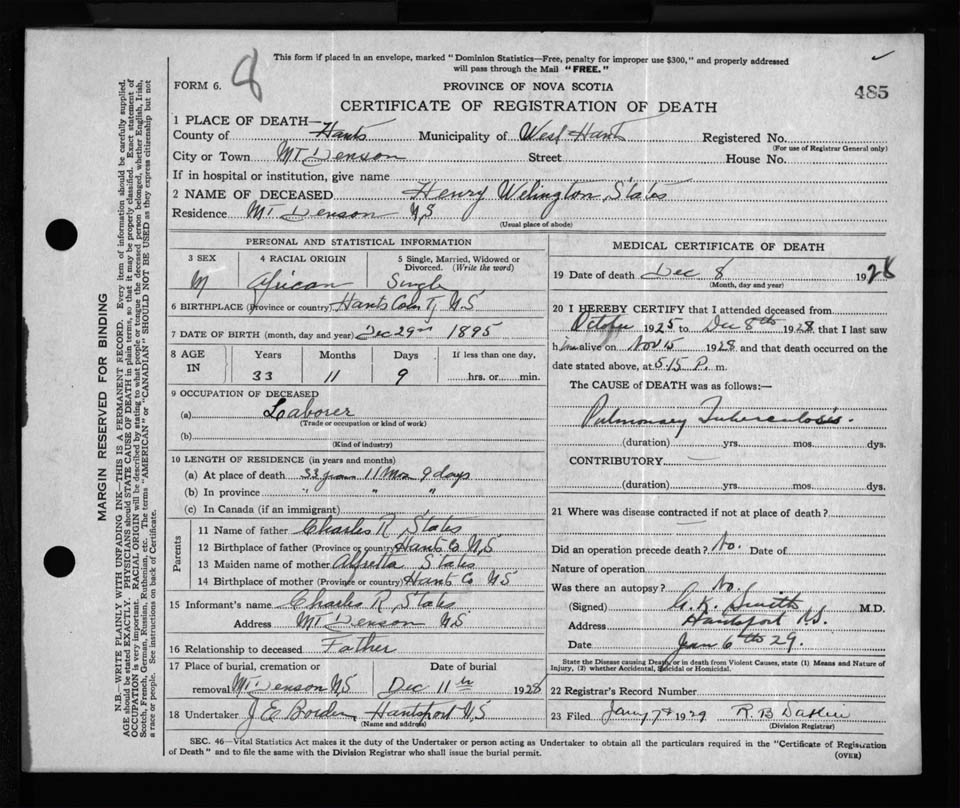 This form if placed in an envelope, marked "Dominion Statistics—Free, penalty for improper use $300," and properly addressed
will pass through the Mail "FREE."
FORM 6.
8
PROVINCE OF NOVA SCOTIA
485
CERTIFICATE OF REGISTRATION OF DEATH
1 PLACE OF DEATH—
County of Hants Municipality of West Hants Registered No.
(For use of Registrar General only)
City or Town Mt Denson Street House No.
If in hospital or institution, give name
2 NAME OF DECEASED Henry Welington States
Residence Mt Denson N,S
(Usual place of abode)
PERSONAL AND STATISTICAL INFORMATION
3 SEX 4 RACIAL ORIGIN 5 Single, Married, Widowed or Divorced. (Write the word)
M African Single
6 BIRTHPLACE (Province or country) Hants County N S
7 DATE OF BIRTH (month, day and year) Dec 29 1895
8 AGE IN Years Months Days If less than one day,
33 11 9 hrs. or min.
9 OCCUPATION OF DECEASED
(a) Laborer
(Trade or occupation or kind of work)
(b)
(Kind of industry)
10 LENGTH OF RESIDENCE (in years and months)
(a) At place of death 33 years 11 Mos 9 days
(b) In province " " "
(c) In Canada (if an immigrant)
Parents
11 Name of father Charles R, States
12 Birthplace of father (Province or country) Hants Co N,S
13 Maiden name of mother Alfretta States
14 Birthplace of mother (Province or country) Hants Co N S
15 Informant's name Charles R, States
Address Mt Denson N S
16 Relationship to deceased Father
17 Place of burial, cremation or Date of burial
removal Mt Denson N S Dec 11th 1928
18 Undertaker J E Borden Hantsport N S
(Name and address)
MEDICAL CERTIFICATE OF DEATH
19 Date of death Dec 8 1928
(Month, day and year)
20 I HEREBY CERTIFY that I attended deceased from
October 1925 to Dec 8th 1928 that I last saw
him alive on Nov 15 1928 and that death occurred on the
date stated above, at 5.15 P. m.
The CAUSE of DEATH was as follows:—
Pulmonary Tuberculosis.
(duration) yrs. mos. dys.
CONTRIBUTORY
(duration) yrs. mos. dys.
21 Where was disease contracted if not at place of death?
Did an operation precede death? No. Date of
Nature of operation
Was there an autopsy? No.
(Signed) A. K. Smith M.D.
Address Hantsport N.S.
Date Jan 6th 29.
State the Disease causing Death, or in death from Violent Causes, state (1) Means and Nature of
Injury, (2) whether Accidental, Suicidal or Homicidal.
22 Registrar's Record Number
23 Filed 1929 R. B
(Division Registrar)
SEC. 46—Vital Statistics Act makes it the duty of the Undertaker or person acting as Undertaker to obtain all the particulars required in the "Certificate of Registration
of Death" and to file the same with the Division Registrar who shall issue the burial permit.
(OVER)
MARGIN RESERVED FOR BINDING
N.B.—WRITE PLAINLY WITH UNFADING INK—THIS IS A PERMANENT RECORD. Every item of information should be carefully supplied.
AGE should be stated EXACTLY. PHYSICIANS should STATE CAUSE OF DEATH in plain terms, so that it may be properly classified. Exact statement of
OCCUPATION is very important. RACIAL ORIGIN will be described by stating to what people or tongue the deceased person belonged, whether English, Irish,
Scotch, French, German, Russian, Ruthenian, etc. The terms "AMERICAN" or "CANADIAN" SHOULD NOT BE USED as they express citizenship but not
a race or people. See instructions on back of Certificate.